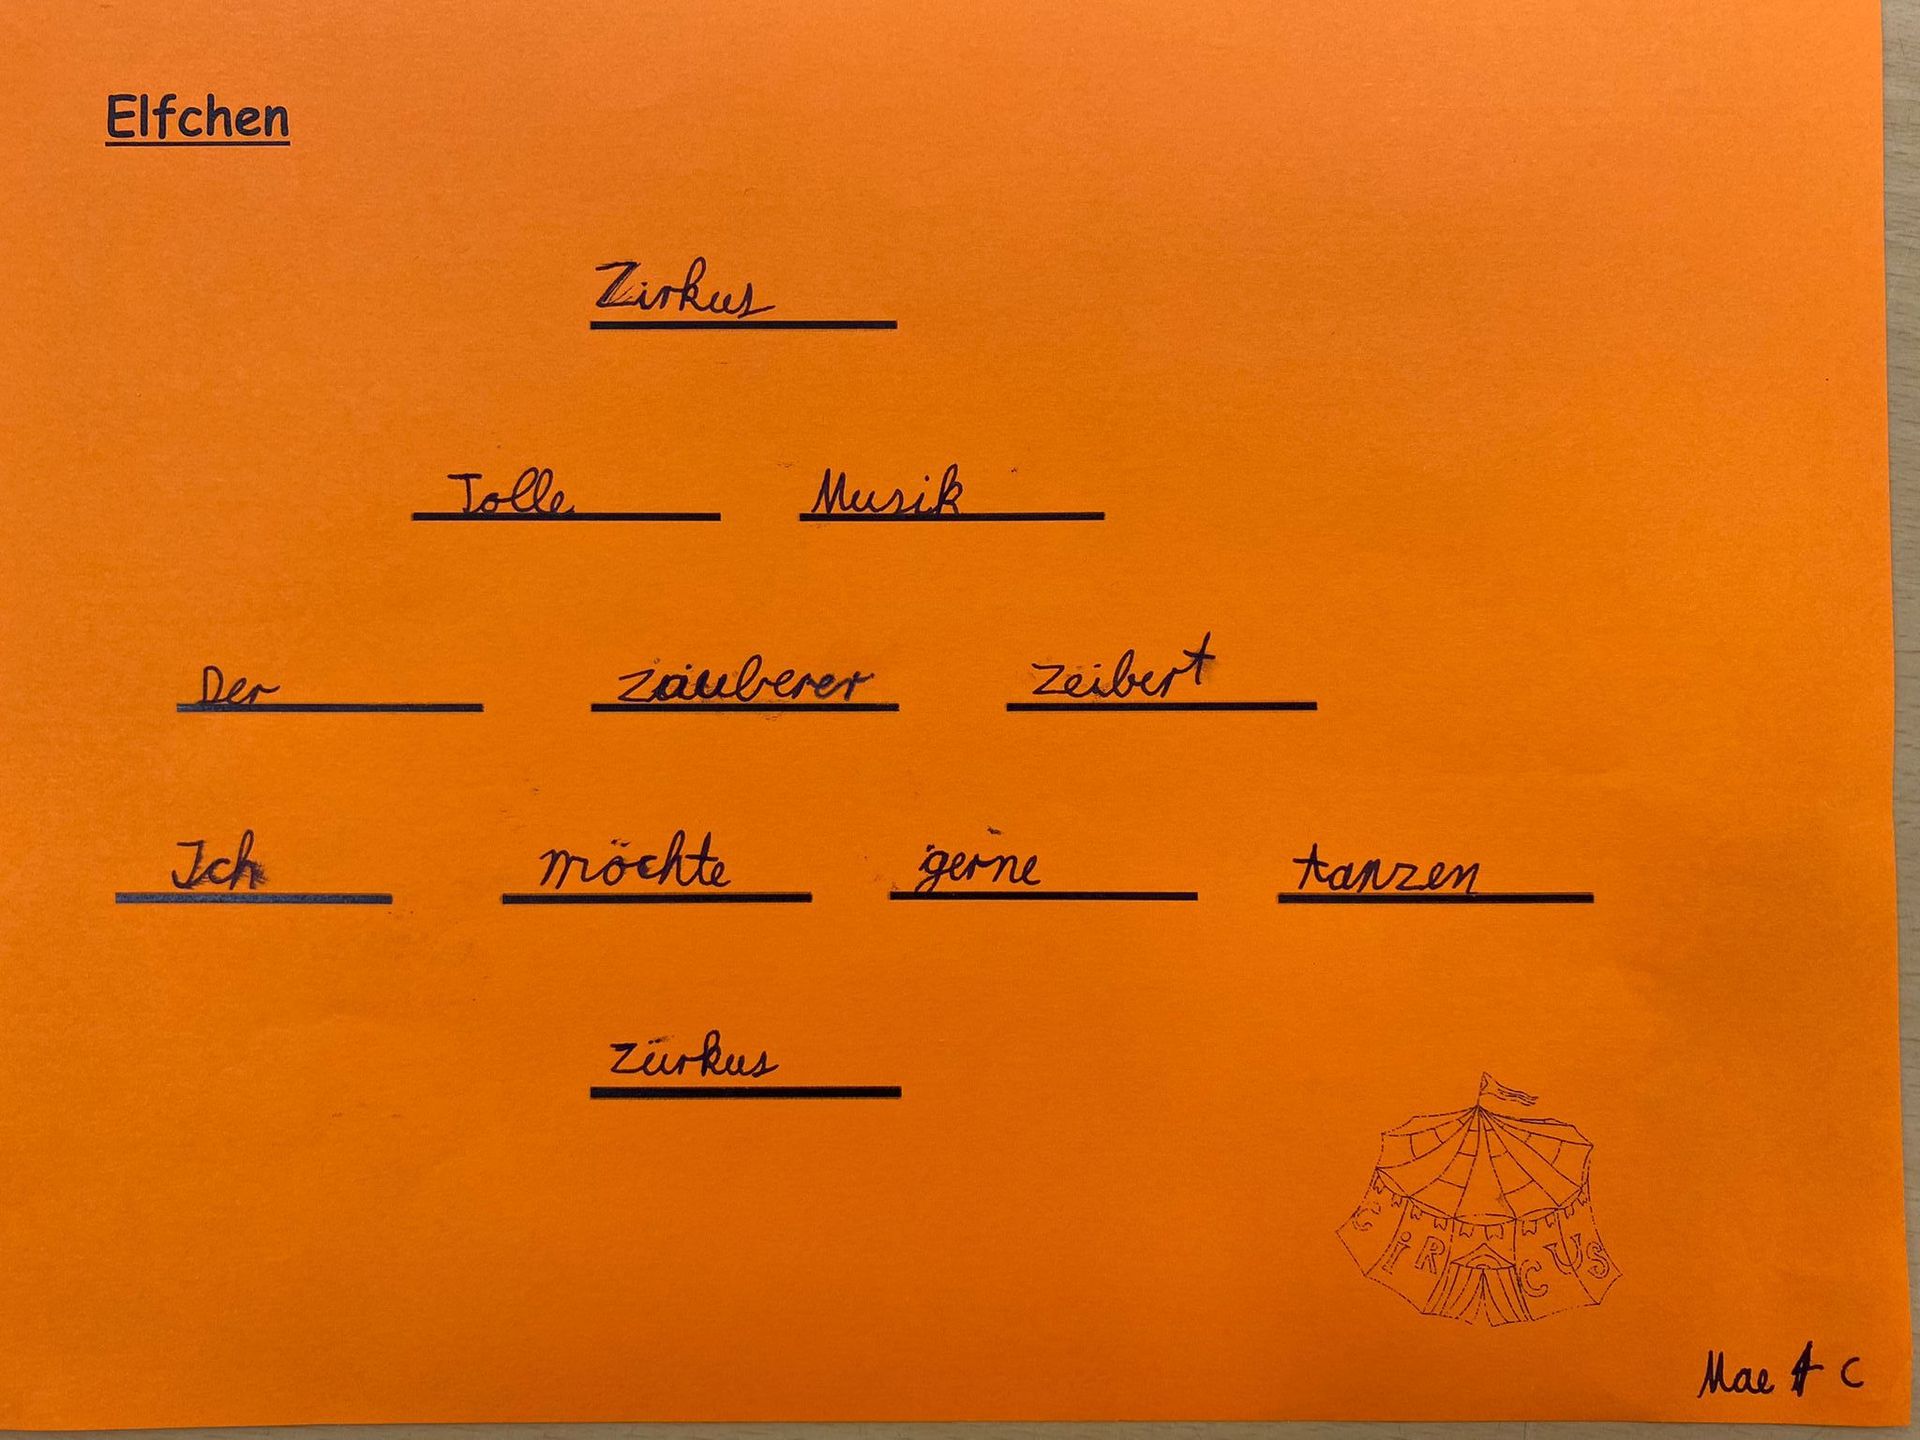 Elfchen
Zirkus
Tolle Musik
Der Zauberer Zeibert
Ich möchte gerne tanzen
Zürkus
CiRCUS
Mae A C